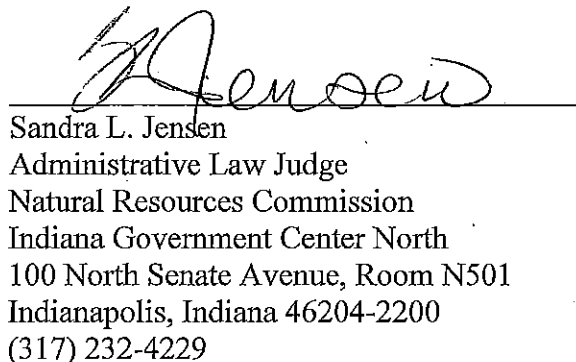 SLJensen
Sandra L. Jensen
Administrative Law Judge
Natural Resources Commission
Indiana Government Center North
100 North Senate Avenue, Room N501
Indianapolis, Indiana 46204-2200
(317) 232-4229